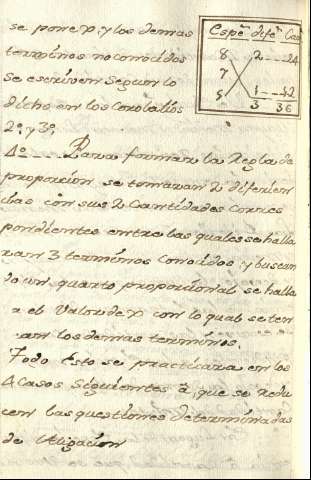 se pone x, y los demas
terminos no conocidos
se escriven segun lo
dicho en los Corolarios
2º y 3º
Espê difeª Can
8 2 ... 24
7
5 1 --- 12
3 36
4º --- Para formar la Regla de
proporcion se tomaran 2 diferien
cias con sus 2 Cantidades corres
pondientes entre las quales se halla
ran 3 terminos conocidos y buscan
do un quarto proporcional se halla
a el Valor de x con lo qual se ten
ran los demas terminos.
Todo esto se practicara en los
4 Casos siguientes à que se redu
cen las questiones determinadas
de Aligacion